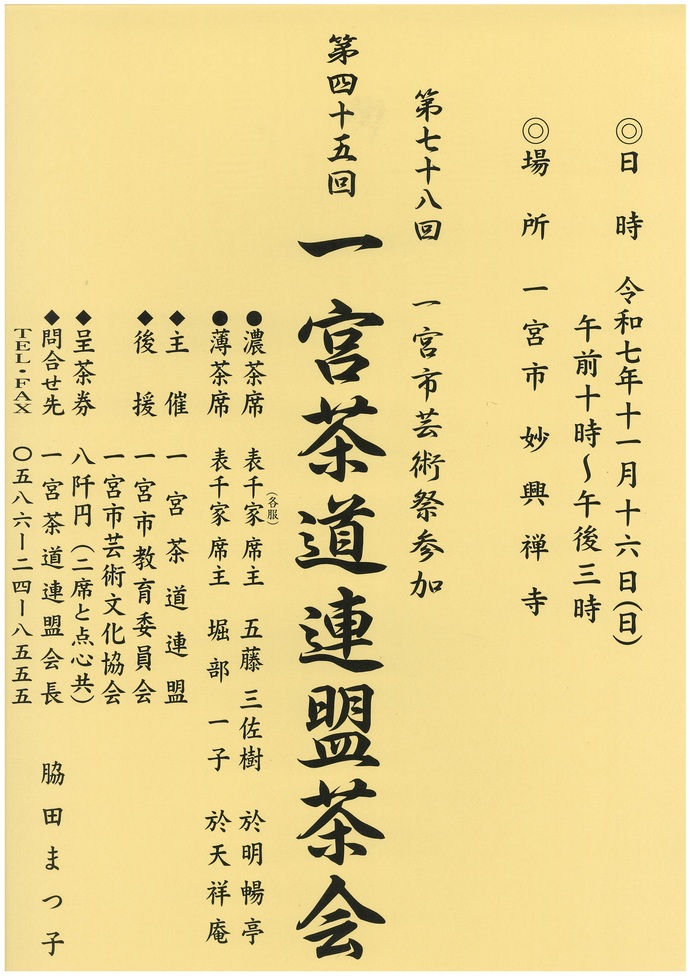 ◎日時 令和七年十一月十六日(日)
午前十時〜午後三時
◎場所 一宮市 妙興禅寺
第七十八回 一宮市芸術祭参加
第四十五回 一宮茶道連盟茶会
●濃茶席 表千家(各服) 席主 五藤 三佐樹 於明暢亭
●薄茶席 表千家 席主 堀部 一子 於天祥庵
◆主催 一宮茶道連盟
◆後援 一宮市教育委員会
一宮市芸術文化協会
◆呈茶券 八阡円(二席と点心共)
◆問合せ先 一宮茶道連盟会長 脇田まつ子
TEL・FAX 〇五八六ー二四ー八五五五